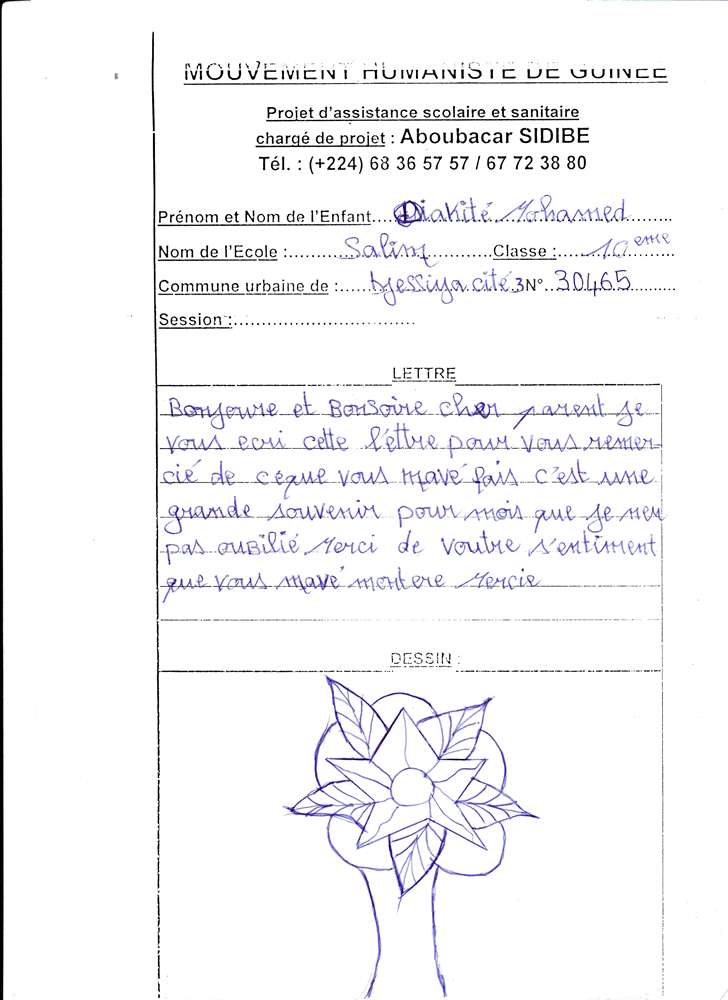 MOUVEMENT HUMANISTE DE GUINEE
Projet d'assistance scolaire et sanitaire
chargé de projet : Aboubacar SIDIBE
Tél. : (+224) 68 36 57 57 / 67 72 38 80
Prénom et Nom de l'Enfant....Diakité Mohamed........
Nom de l'Ecole :..........Salim...........Classe :......10eme
Commune urbaine de :.....Djessiya cité 3 N°..30465.........
Session :................................
LETTRE
Bonjoure et Bonsoire cher parent je
vous ecri cette l'éttre pour vous remer-
cié de ceque vous mavé fais c'est une
grande souvenir pour mois que je neu
pas oubilié Merci de voutre s'entiment
que vous mavé montere Mercie
DESSIN :